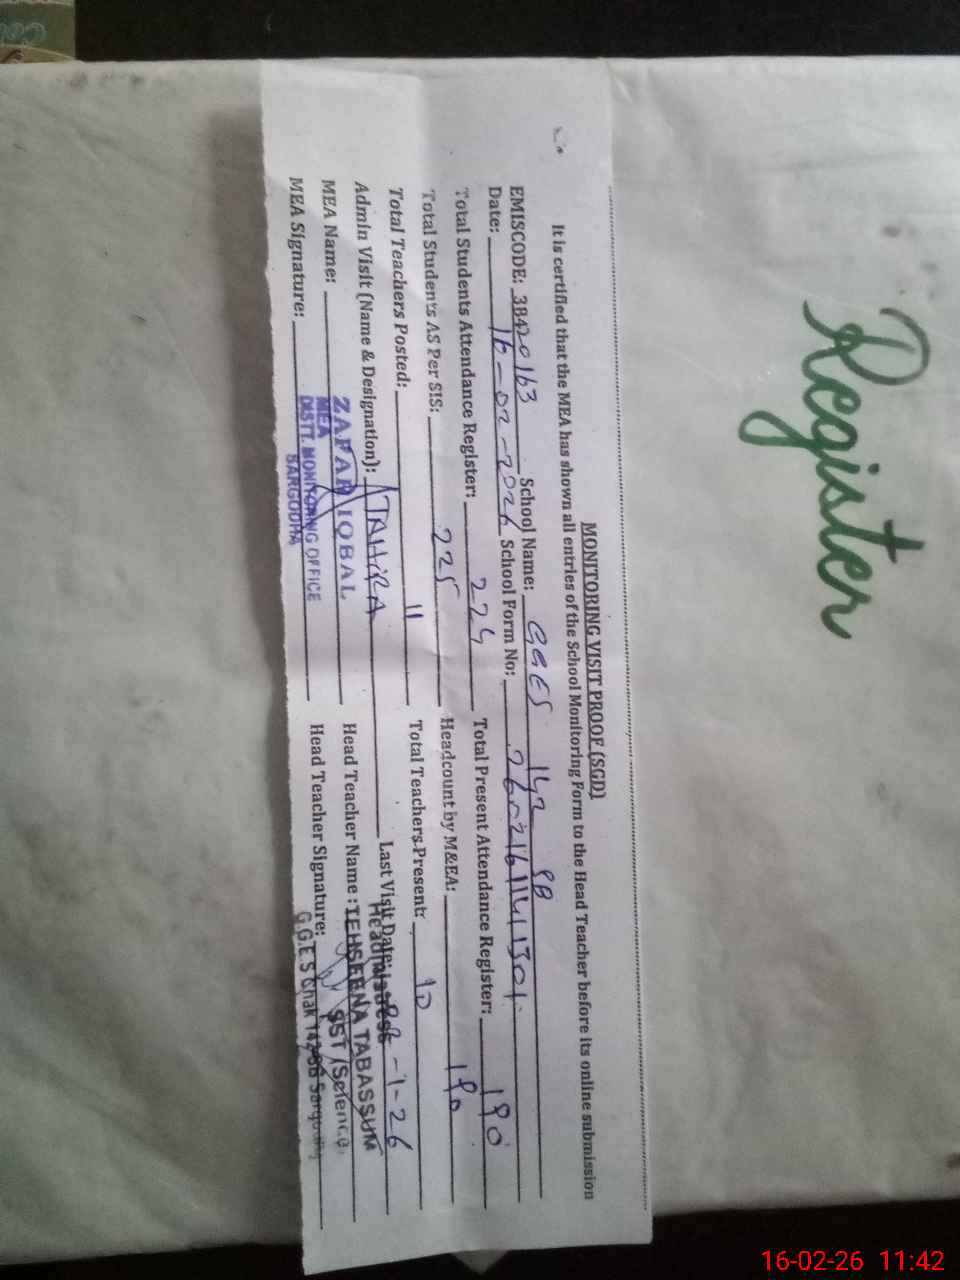 Register
MONITORING VISIT PROOF (SGD)
It is certified that the MEA has shown all entries of the School Monitoring Form to the Head Teacher before its online submission
EMISCODE: 38420163 School Name: GGES 142 SB
Date: 16-02-2026 School Form No: 2602161141301
Total Students Attendance Register: 224 Total Present Attendance Register: 190
Total Students AS Per SIS: 225 Headcount by M&EA: 190
Total Teachers Posted: 11 Total Teachers Present: 10
Admin Visit (Name & Designation): TAHIRA Last Visit Date: -1-26
Headmistress
MEA Name: ZAFAR IQBAL Head Teacher Name: TEHSEENA TABASSUM
MEA SST (Science)
MEA Signature: DISTT. MONITORING OFFICE Head Teacher Signature:
SARGODHA G.G.E.S Chak 142 SB Sargodha
16-02-26 11:42